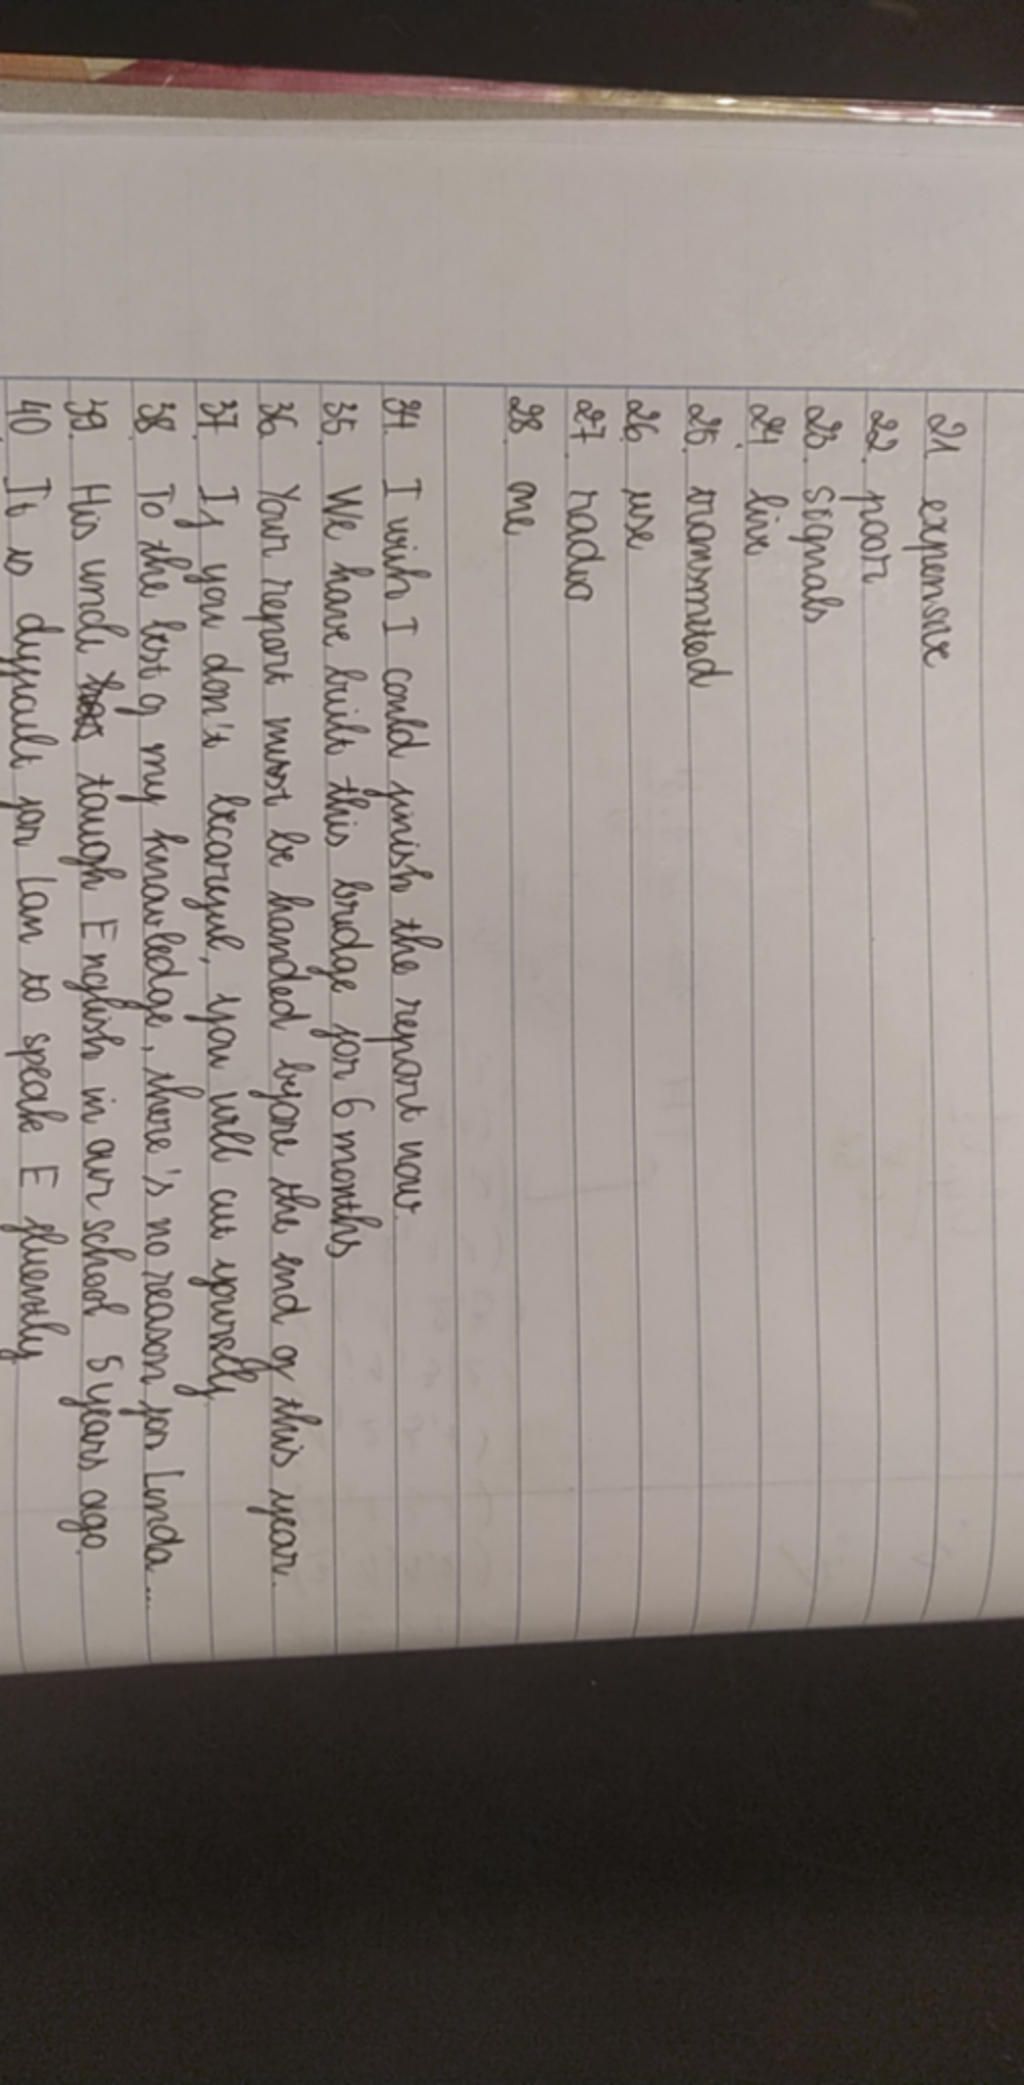 21 expensive
22. poor
23. signals
24 live
25. transmited
26 use
27. radio
28. one
34. I wish I could finish the report now.
35. We have built this bridge for 6 months
36. Your report must be handed before the end of this year.
37. If you don't becareful, you will cut yourself.
38 To the best of my knowledge, there's no reason for Linda...
39. His uncle taugh English in our school 5 years ago.
40 It is difficult for Lan to speak E fluently